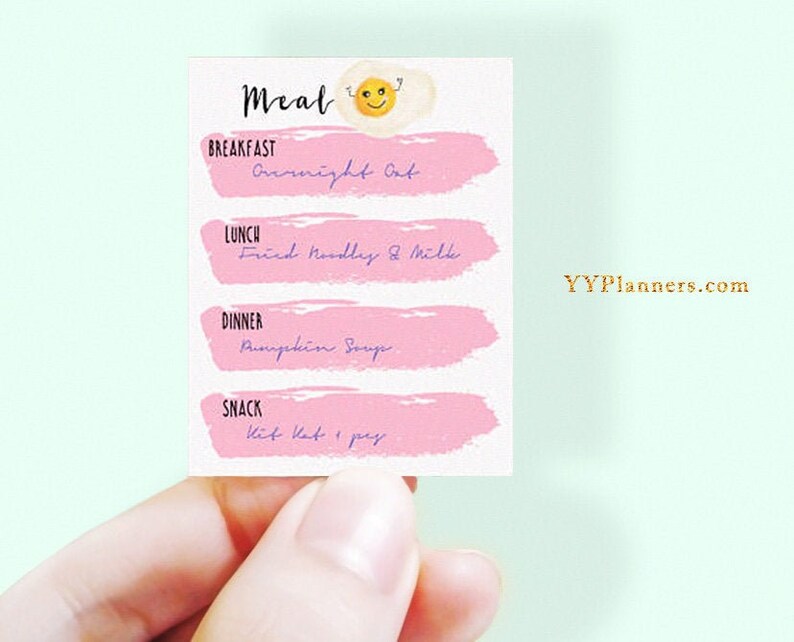 Meal
BREAKFAST
Overnight Oat
LUNCH
Fried Noodles & Milk
DINNER
Pumpkin Soup
SNACK
Kit Kat 1 pcs
YYPlanners.com